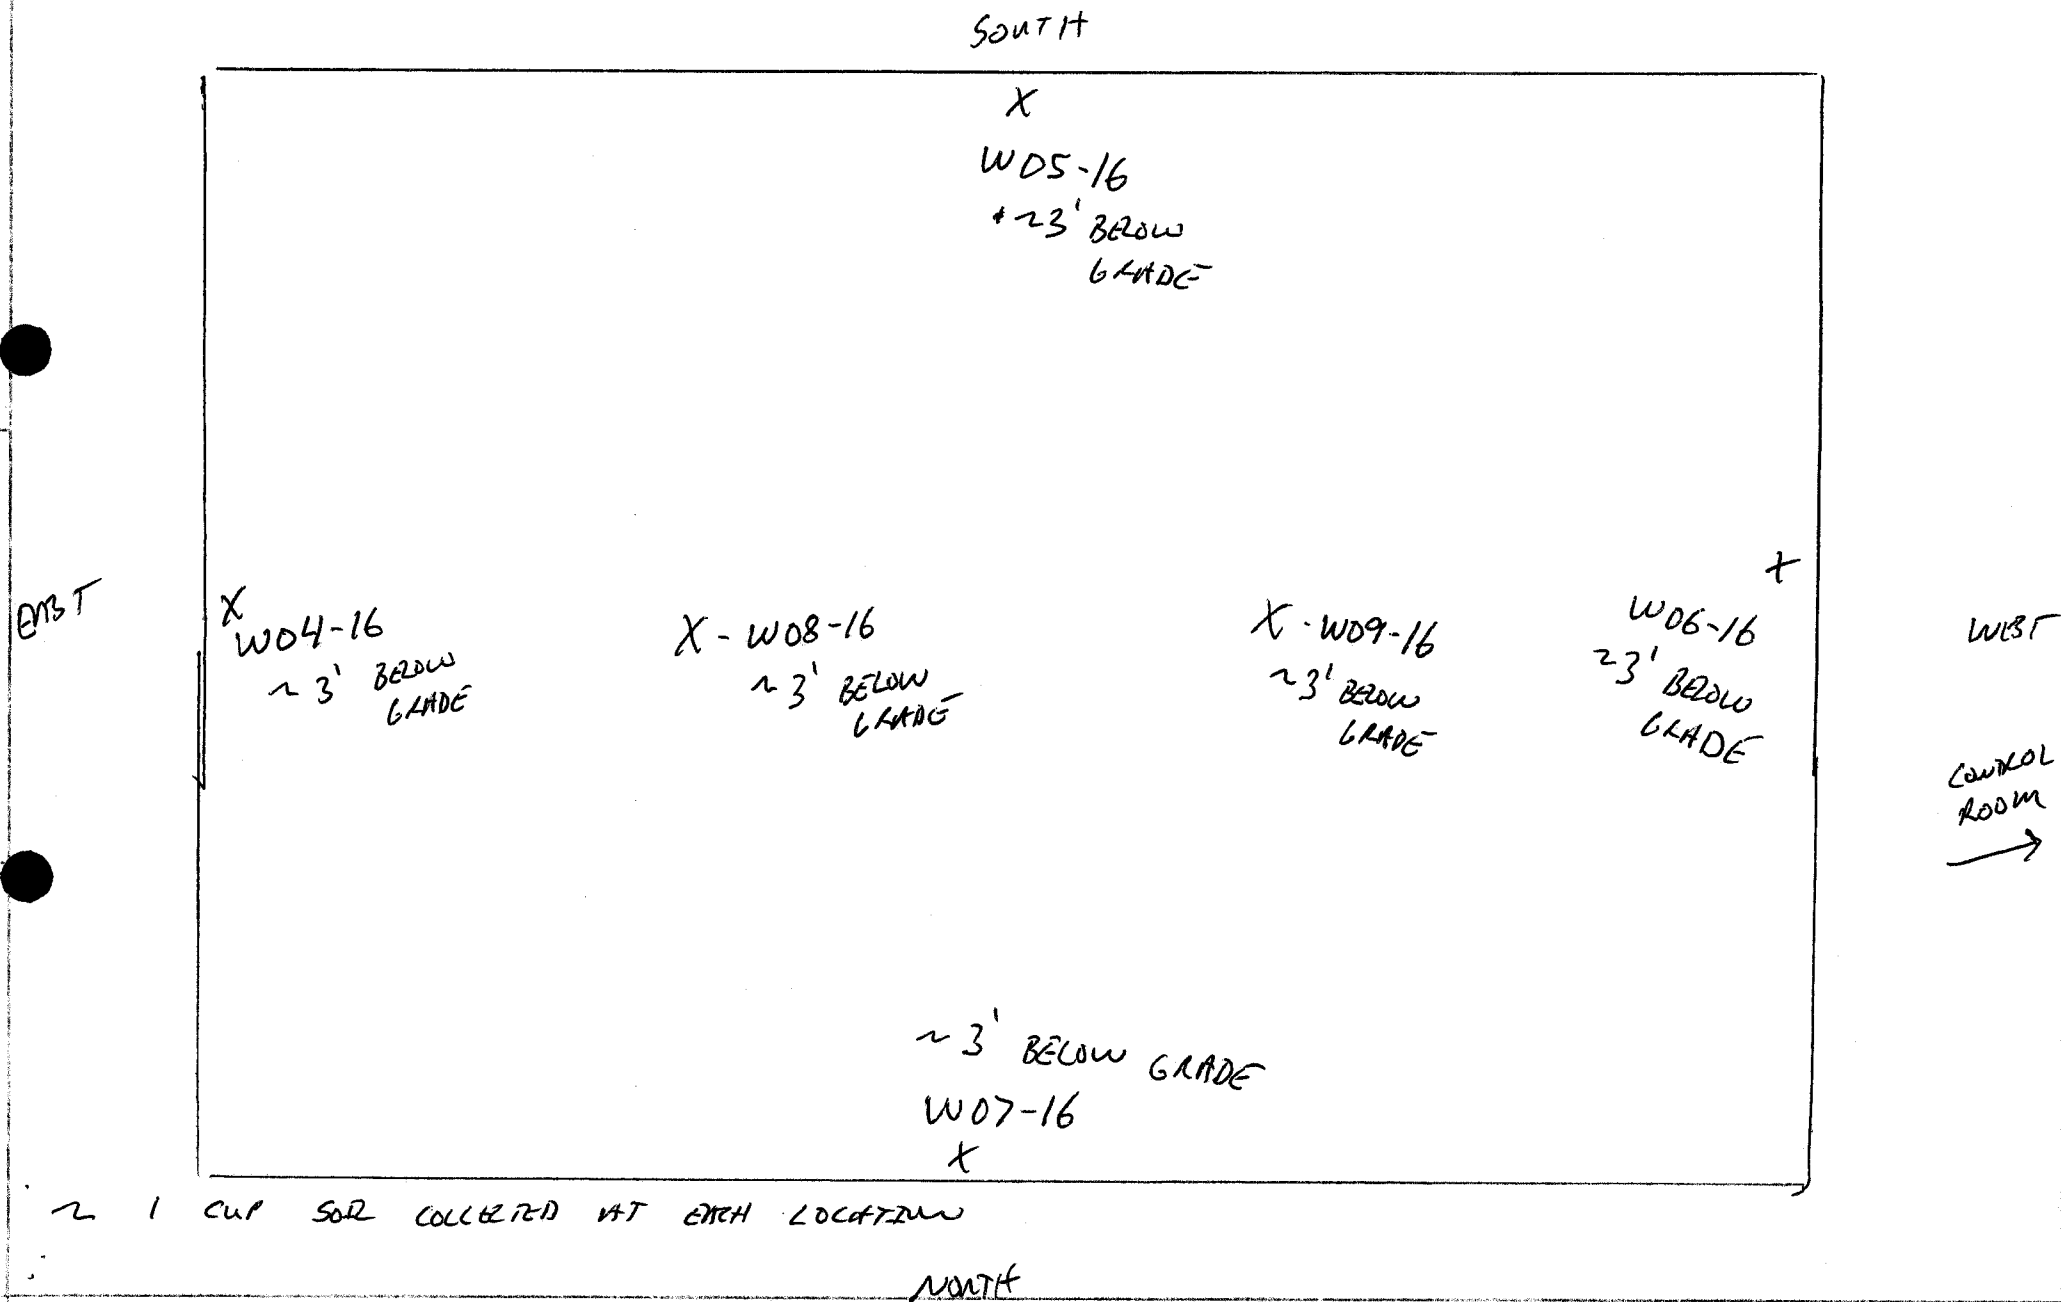 SOUTH
X
W05-16
*~3' BELOW
GRADE
EAST
X
W04-16
~ 3' BELOW
GRADE
X - W08-16
~ 3' BELOW
GRADE
X - W09-16
~3' BELOW
GRADE
X
W06-16
~3' BELOW
GRADE
WEST
CONTROL
ROOM
→
~ 3' BELOW GRADE
W07-16
X
~ 1 CUP SOIL COLLECTED AT EACH LOCATION
NORTH